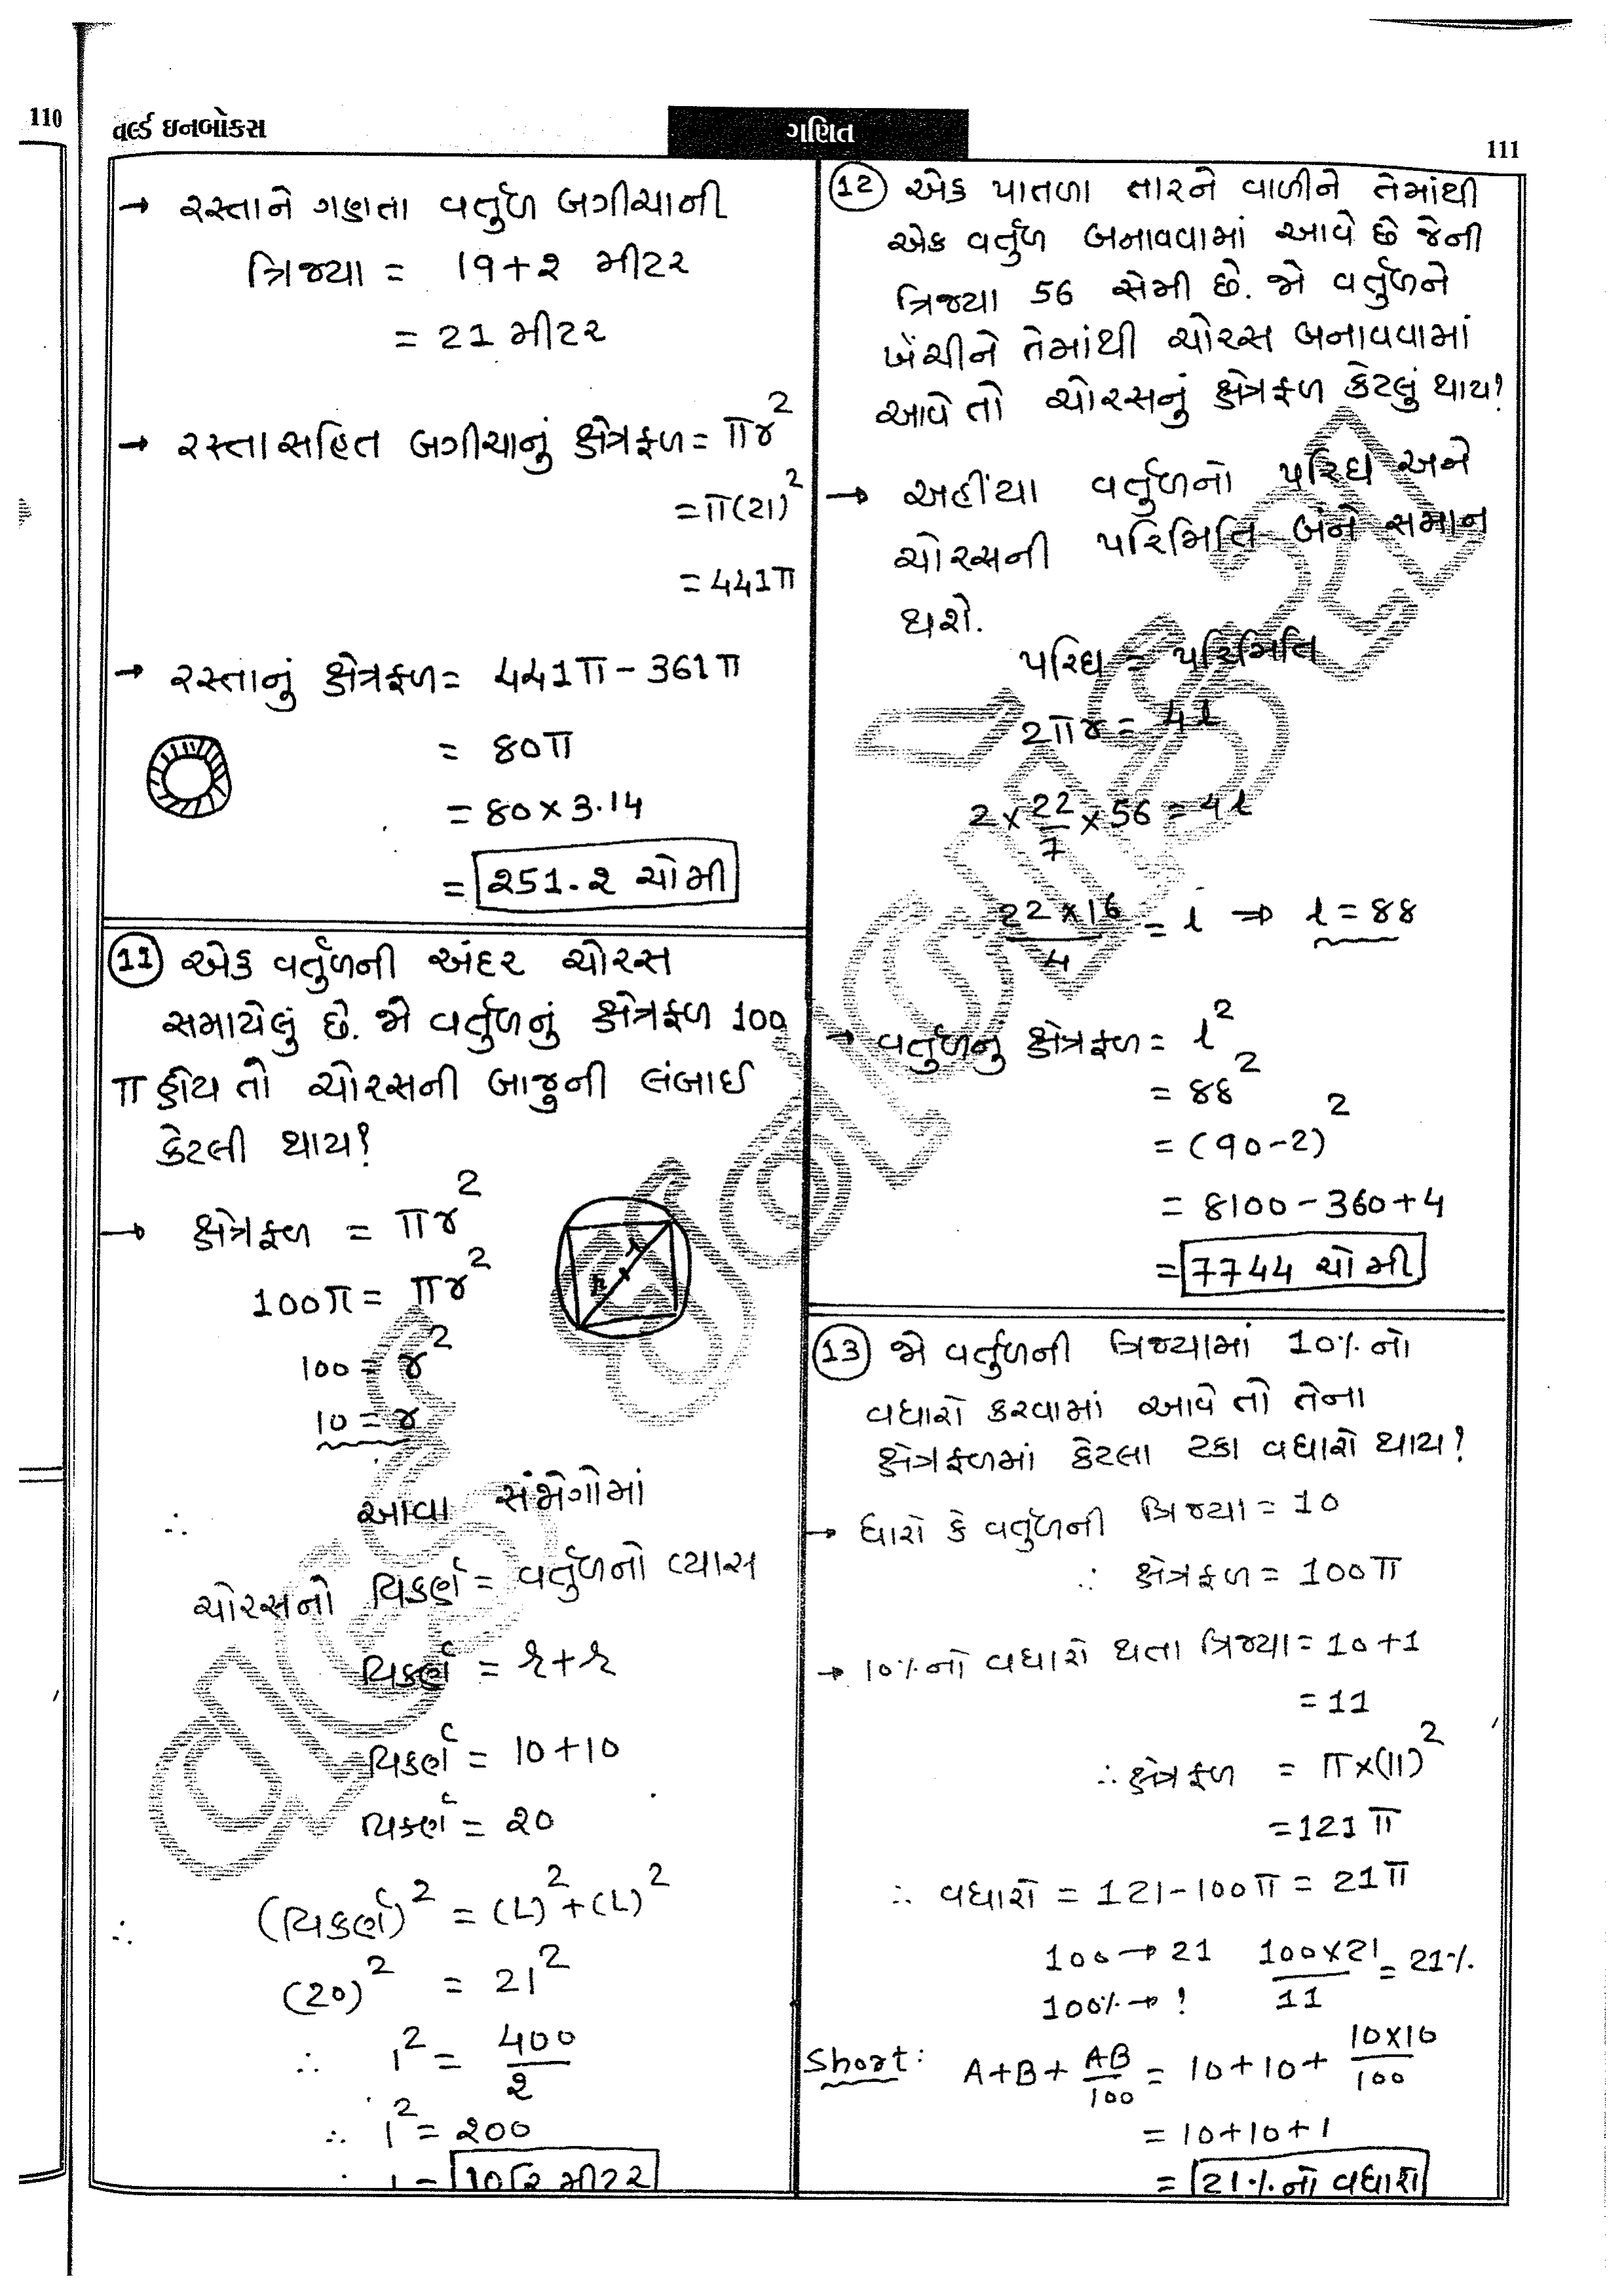 110
વર્લ્ડ ઇનબોક્સ
ગણિત
111
→ રસ્તાને ગણતા વર્તુળ બગીચાની
ત્રિજ્યા = 19+૨ મીટર
= 21 મીટર
→ રસ્તાસહિત બગીચાનું ક્ષેત્રફળ = πr²
= π(21)²
= 441π
→ રસ્તાનું ક્ષેત્રફળ = 441π - 361π
= 80π
= 80 × 3.14
= ૨51.૨ ચોમી
11 એક વર્તુળની અંદર ચોરસ
સમાયેલું છે. જો વર્તુળનું ક્ષેત્રફળ 100
π હોય તો ચોરસની બાજુની લંબાઈ
કેટલી થાય?
→ ક્ષેત્રફળ = πr²
100π = πr²
100 = r²
10 = r
∴ આવા સંજોગોમાં
ચોરસનો વિકર્ણ = વર્તુળનો વ્યાસ
વિકર્ણ = r+r
વિકર્ણ = 10+10
વિકર્ણ = ૨0
∴ (વિકર્ણ)² = (L)²+(L)²
(20)² = 2l²
∴ l² = 400/૨
∴ l² = ૨00
∴ l = 10√૨ મીટર
12 એક પાતળા તારને વાળીને તેમાંથી
એક વર્તુળ બનાવવામાં આવે છે જેની
ત્રિજ્યા 56 સેમી છે. જો વર્તુળને
ખેંચીને તેમાંથી ચોરસ બનાવવામાં
આવે તો ચોરસનું ક્ષેત્રફળ કેટલું થાય?
→ અહીંયા વર્તુળનો પરિઘ અને
ચોરસની પરિમિતિ બંને સમાન
થશે.
પરિઘ = પરિમિતિ
2πr = 4l
2 × 22/7 × 56 = 4l
22×16/4 = l ⇒ l = 88
→ વર્તુળનું ક્ષેત્રફળ = l²
= 88²
= (90-2)²
= 8100 - 360 + 4
= 7744 ચોમી
13 જો વર્તુળની ત્રિજ્યામાં 10% નો
વધારો કરવામાં આવે તો તેના
ક્ષેત્રફળમાં કેટલા ટકા વધારો થાય?
→ ધારો કે વર્તુળની ત્રિજ્યા = 10
∴ ક્ષેત્રફળ = 100π
→ 10% નો વધારો થતા ત્રિજ્યા = 10+1
= 11
∴ ક્ષેત્રફળ = π×(11)²
= 121π
∴ વધારો = 121-100π = 21π
100 → 21 100×21/11 = 21%
100% → ?
Short: A+B+AB/100 = 10+10+10×10/100
= 10+10+1
= 21% નો વધારો